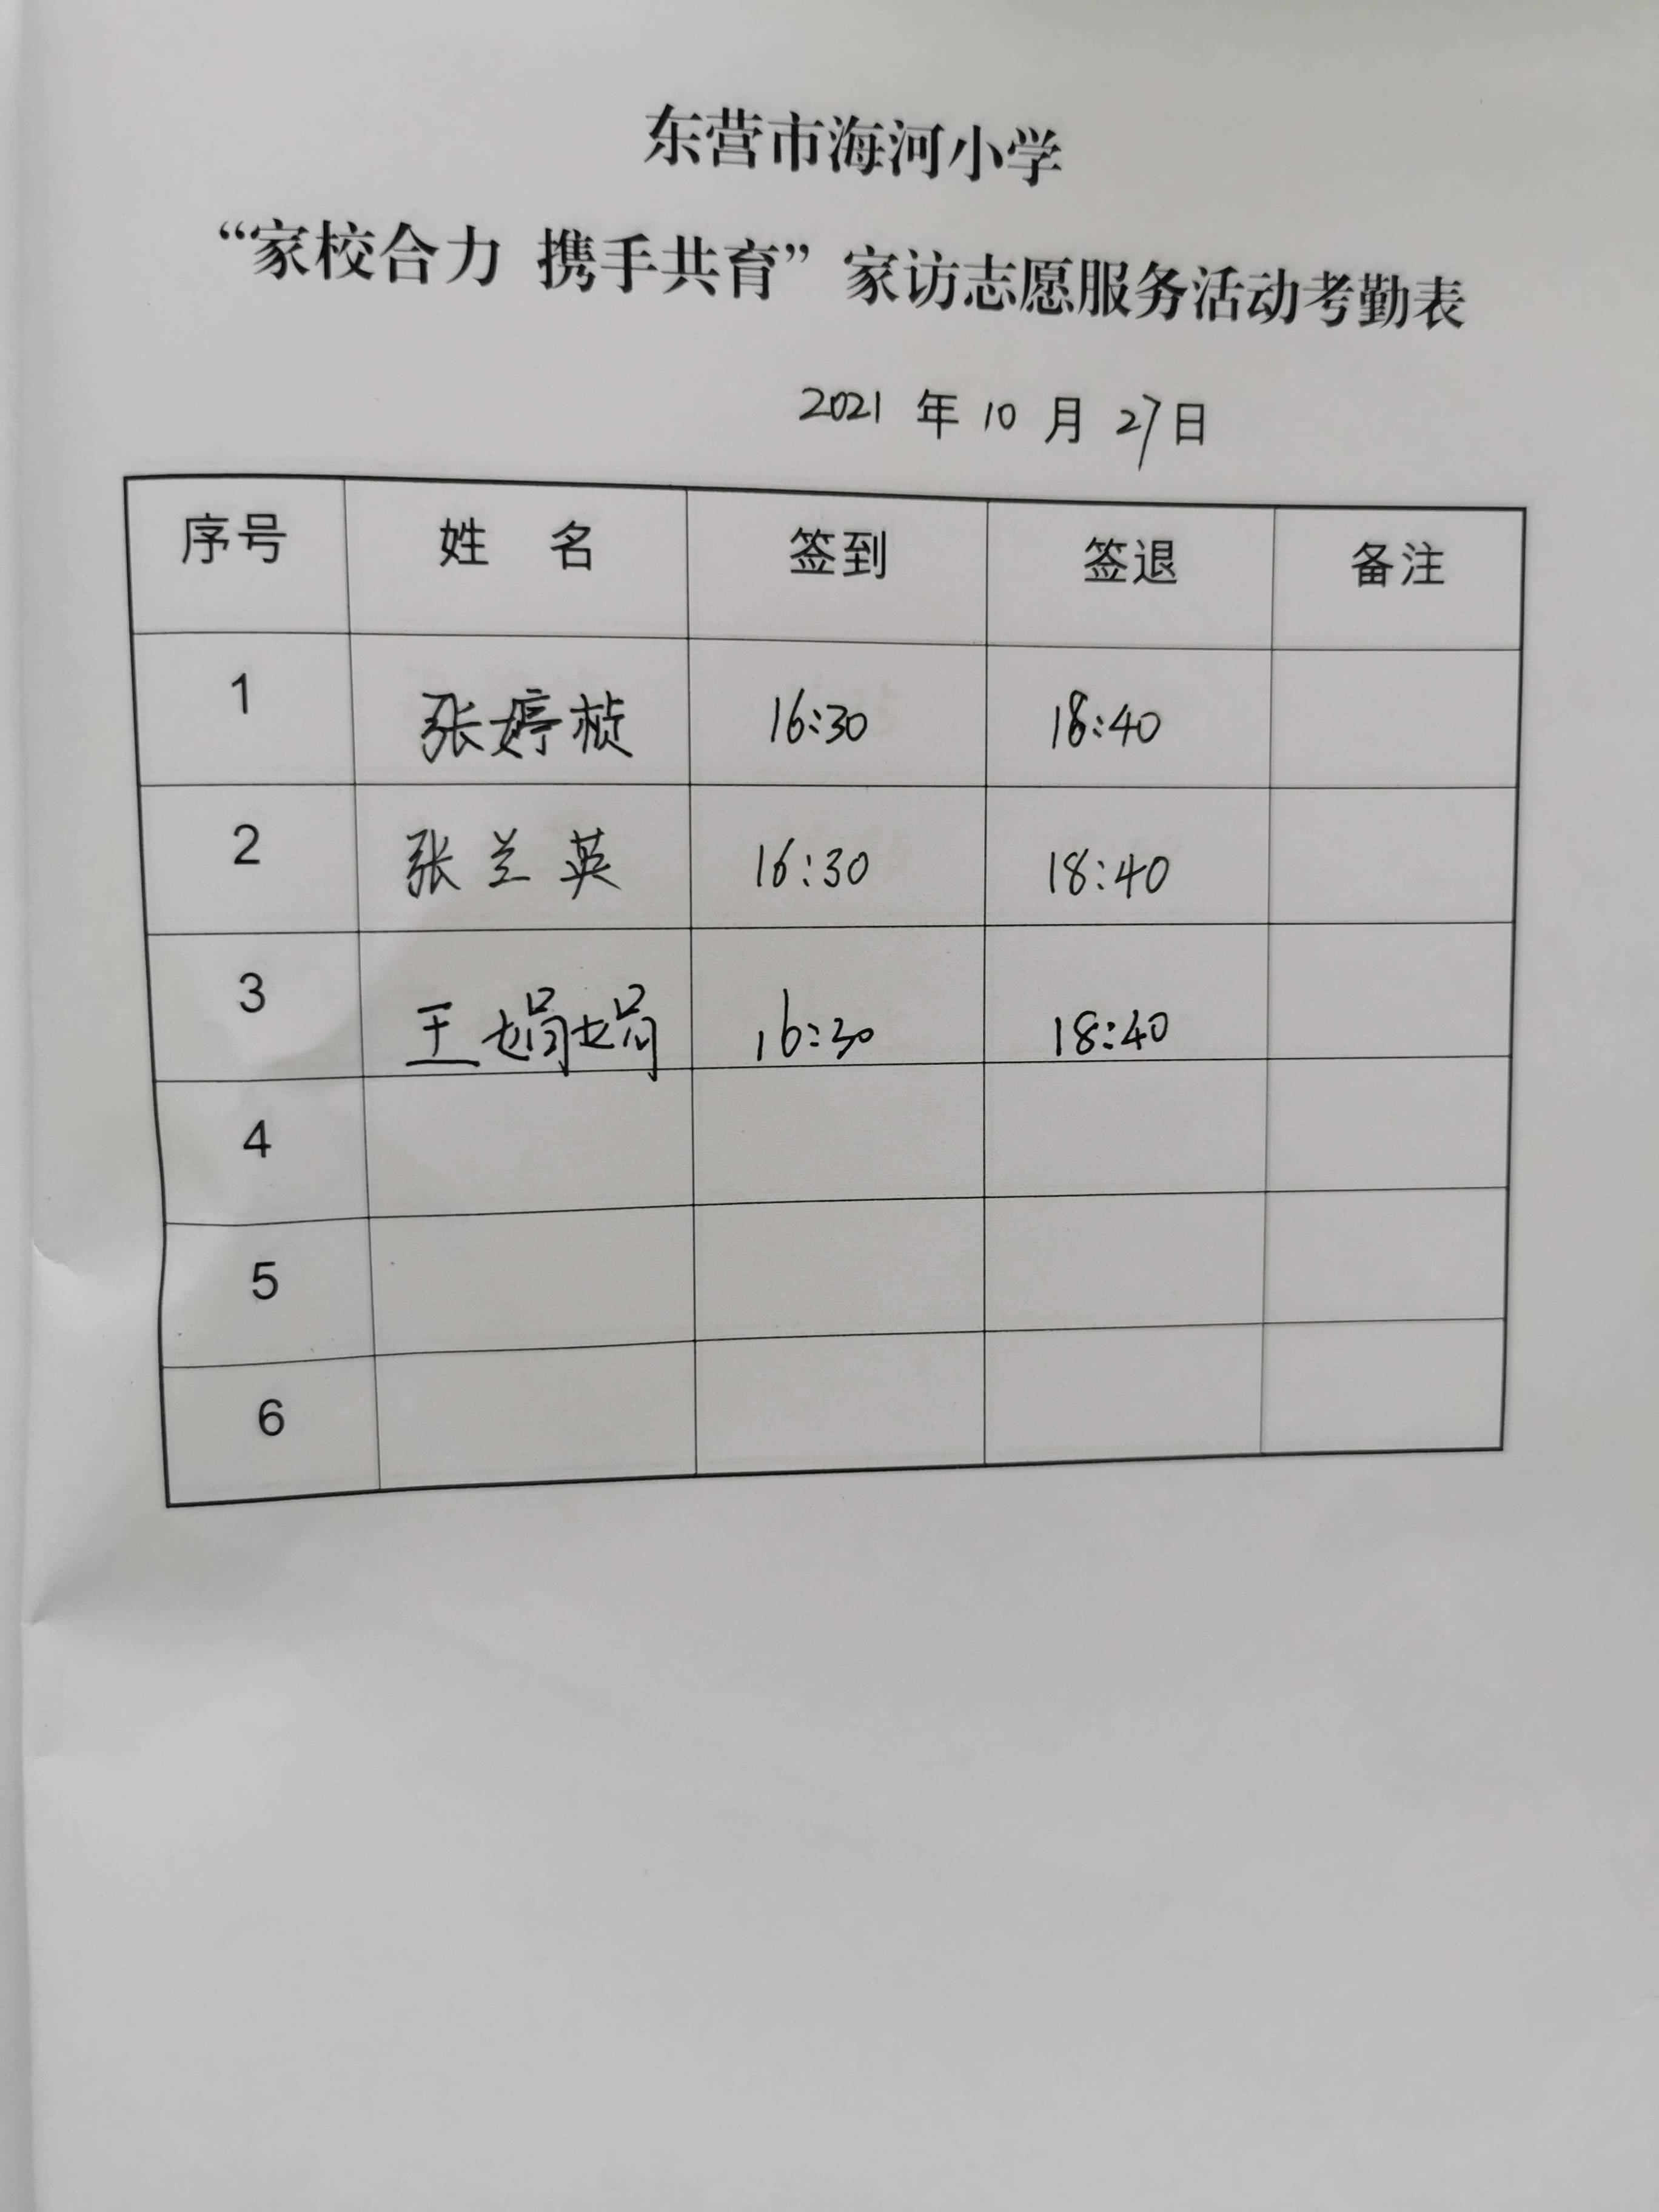 东营市海河小学
“家校合力 携手共育”家访志愿服务活动考勤表
2021 年 10 月 27日
序号 姓 名 签到 签退 备注
1 张婷桢 16:30 18:40
2 张兰英 16:30 18:40
3 王娟娟 16:30 18:40
4
5
6